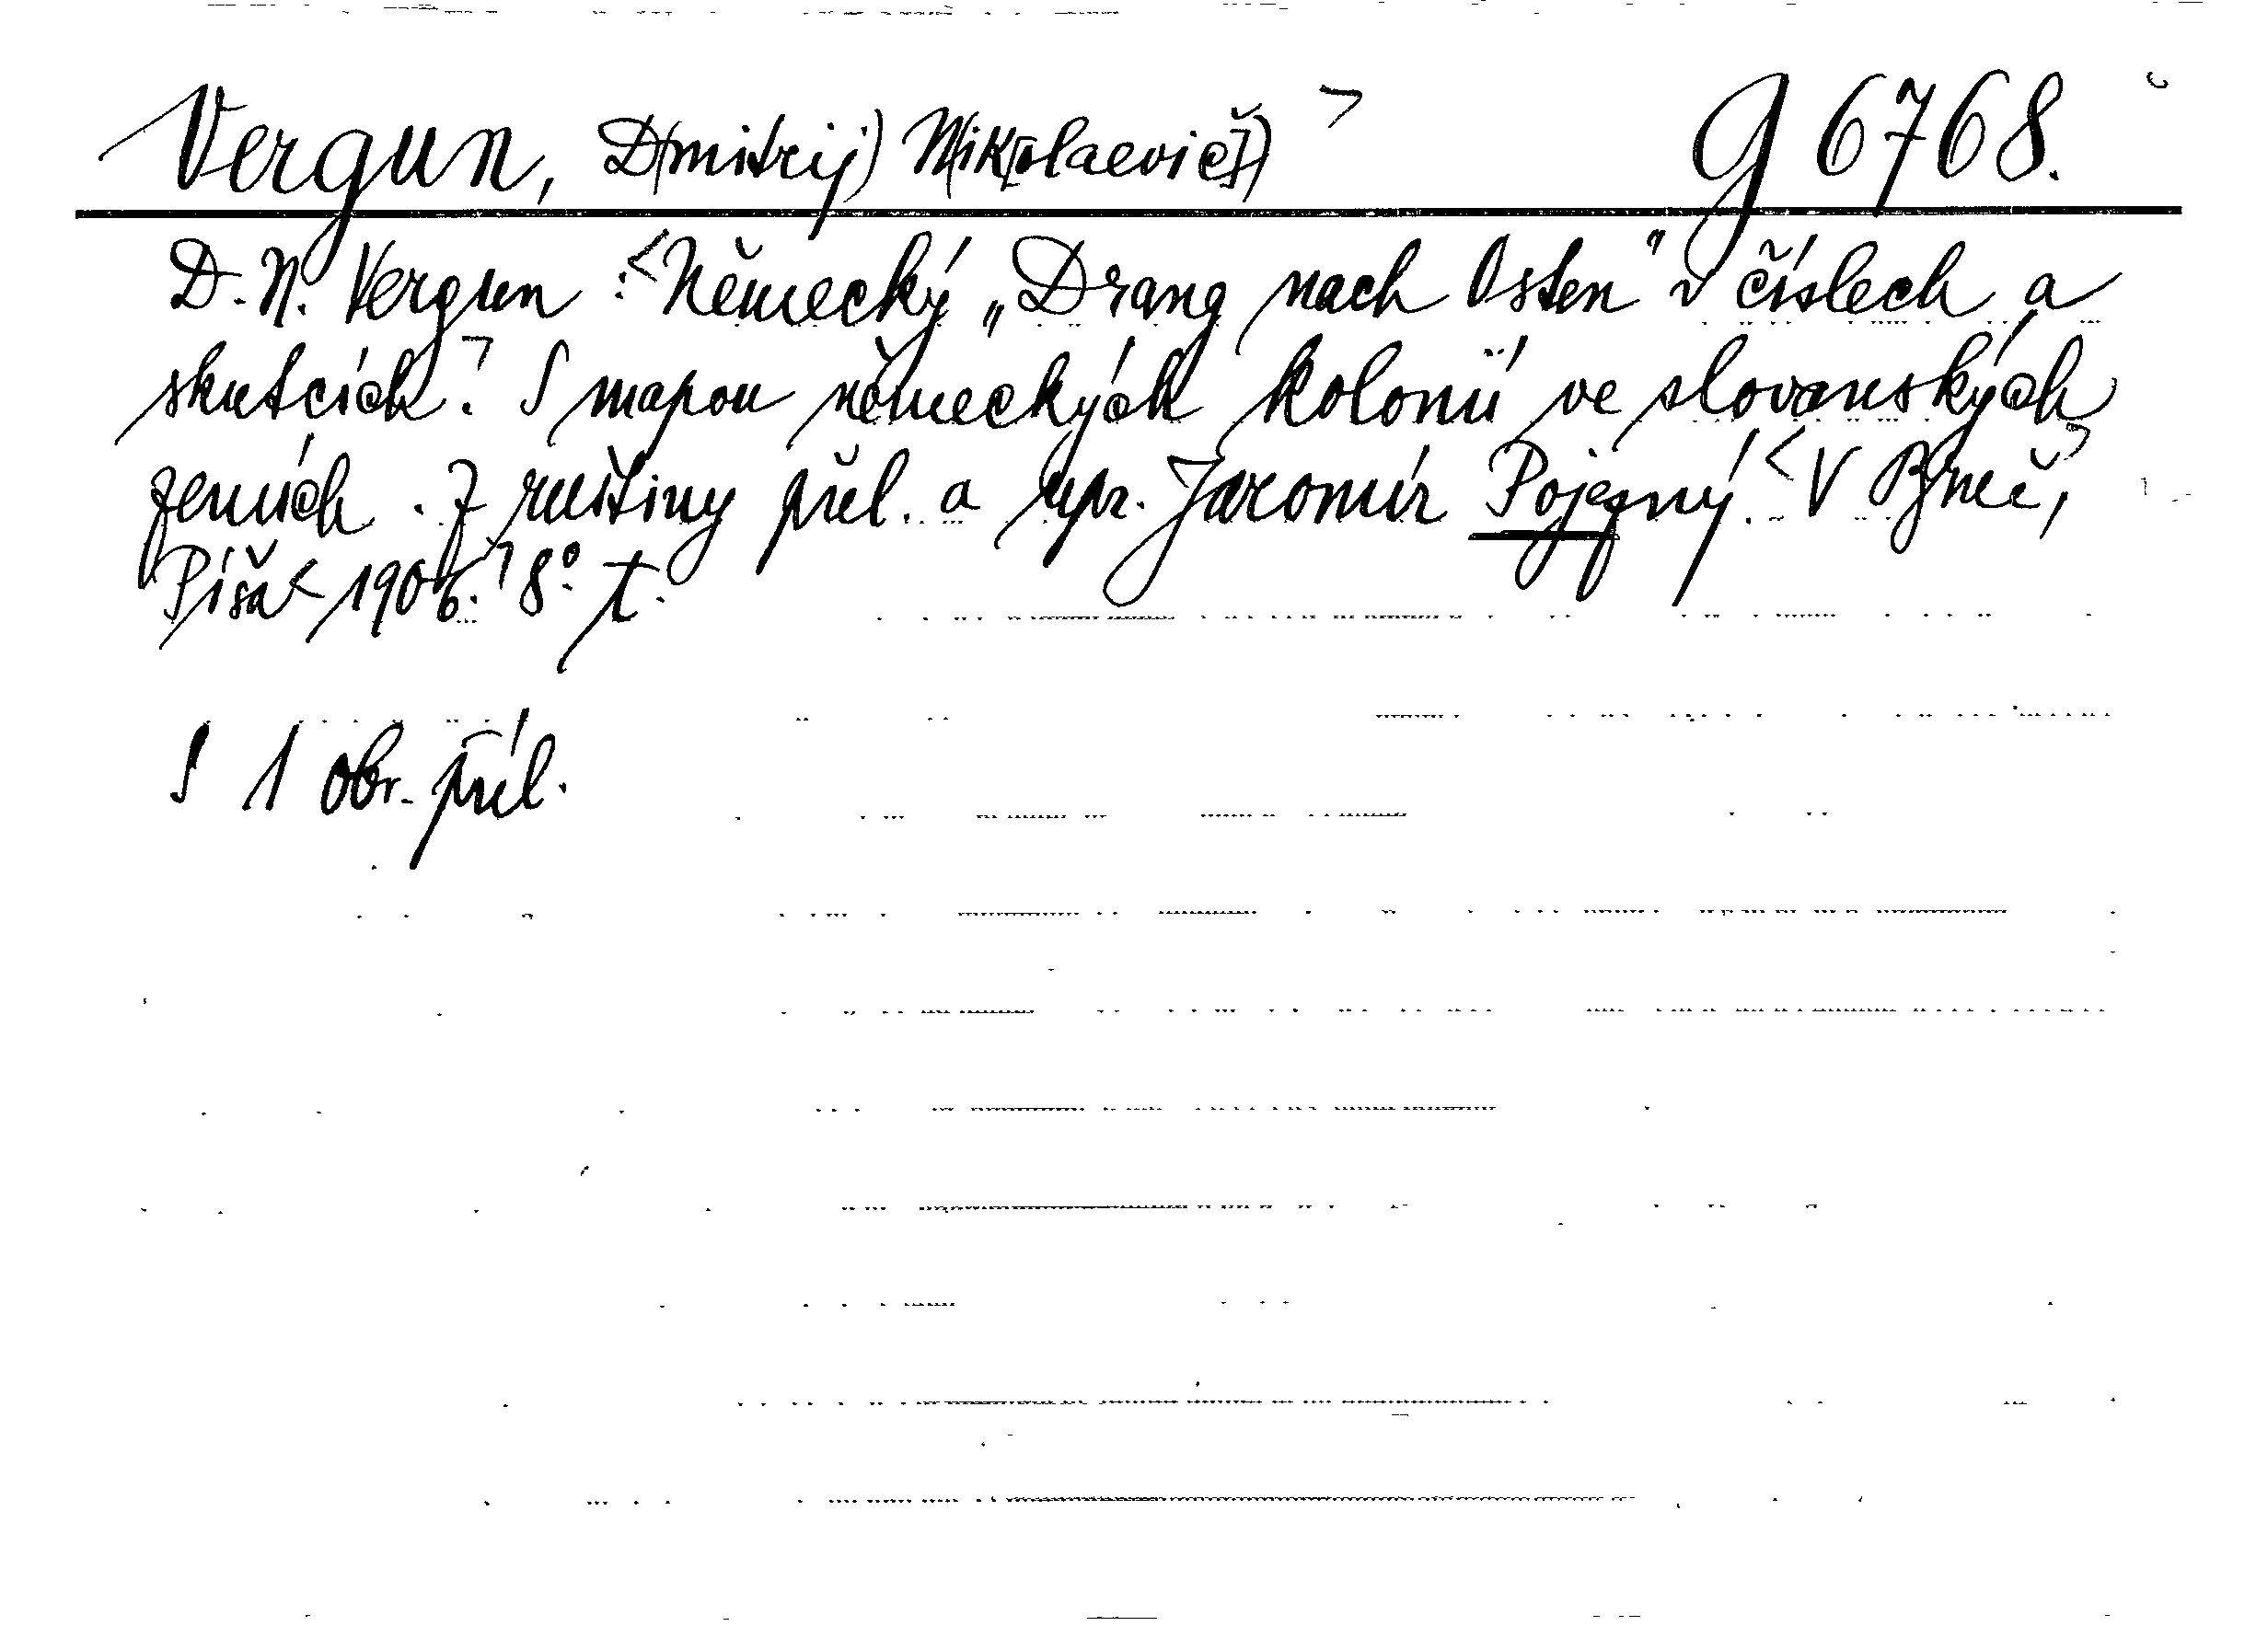 Vergun, D(mitrij) N(ik[olaevič]) g 6768.
D. N. Vergun : Německý „Drang nach Osten" v číslech a
skutcích. S mapou německých kolonií ve slovanských
zemích. Z ruštiny přel. a upr. Jaromír Pojezný. V Brně,
Píša 1906. 8°. t.
S 1 obr. příl.